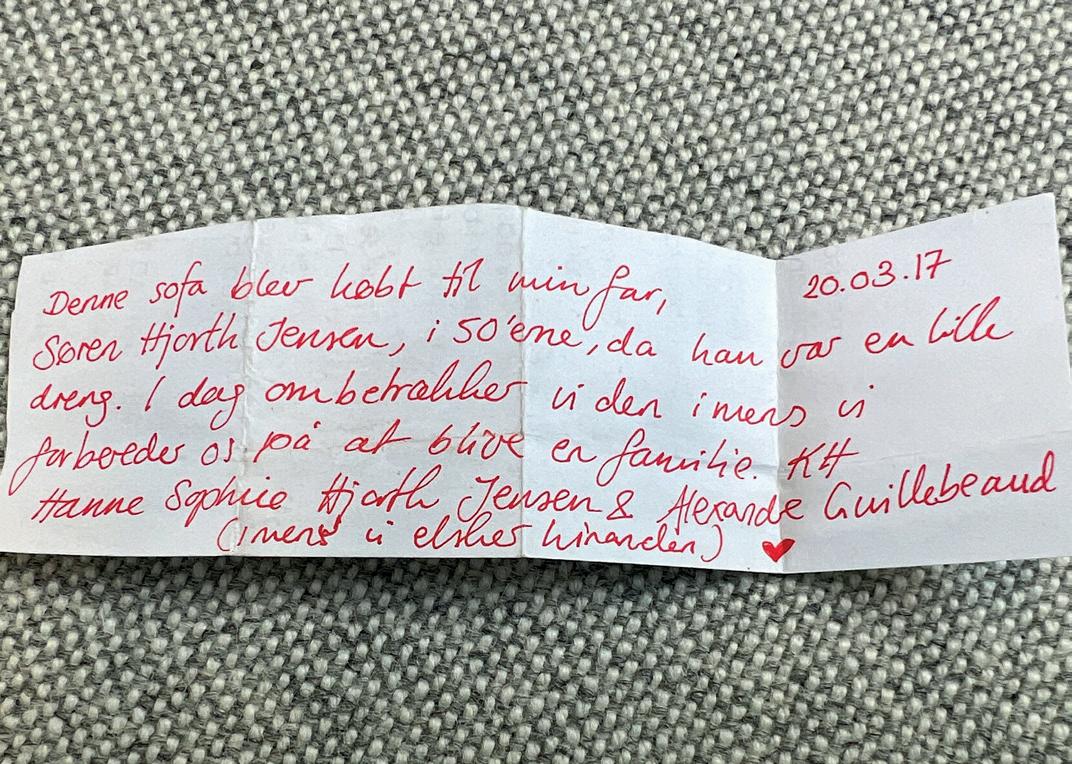 20.03.17
Denne sofa blev købt til min far,
Søren Hjorth Jensen, i 50'erne, da han var en lille
dreng. I dag ombetrækker vi den imens vi
forbereder os på at blive en familie. KH
Hanne Sophie Hjorth Jensen & Alexandre Guillebeaud
(imens vi elsker hinanden) ♥